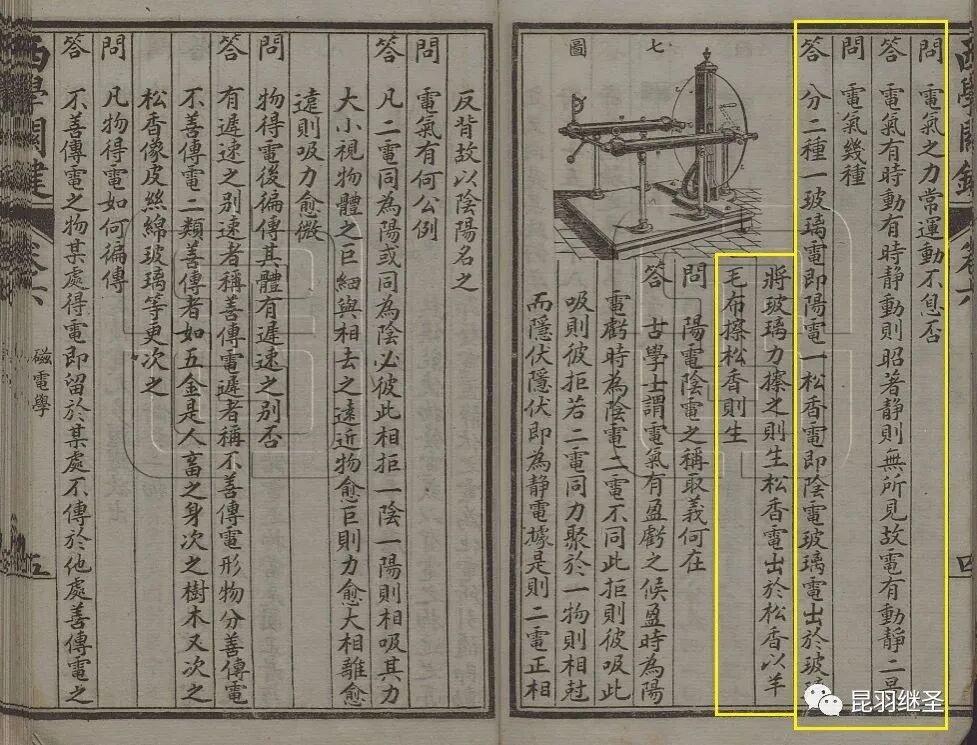 西學關鍵
卷六
四
問 電氣之力常運動不息否
答 電氣有時動有時静動則昭著静則無所見故電有動静二
問 電氣幾種
答 分二種一玻璃電即陽電一松香電即陰電玻璃電出於玻
將玻璃力擦之則生松香電出於松香以羊
毛布擦松香則生
七圖
問 陽電陰電之稱取義何在
答 古學士謂電氣有盈虧之候盈時為陽
電虧時為陰電二電不同此拒則彼吸此
吸則彼拒若二電同力聚於一物則相尅
而隱伏隱伏即為静電據是則二電正相
反背故以陰陽名之
問 電氣有何公例
答 凡二電同為陽或同為陰必彼此相拒一陰一陽則相吸其力
大小視物體之巨細與相去之遠近物愈巨則力愈大相離愈
遠則吸力愈微
問 物得電後徧傳其體有遲速之別否
答 有遲速之別速者稱善傳電遲者稱不善傳電形物分善傳電
不善傳電二類善傳者如五金是人畜之身次之樹木又次之
松香像皮絲綿玻璃等更次之
問 凡物得電如何徧傳
答 不善傳電之物某處得電即留於某處不傳於他處善傳電之
西學關鍵
卷六
磁電學
五
昆羽继圣